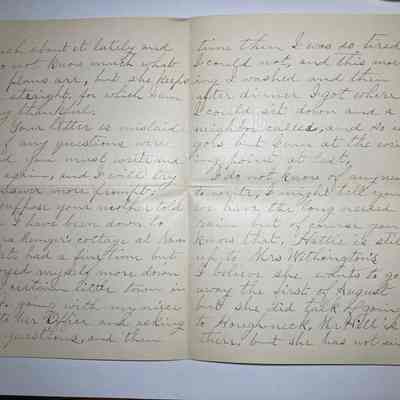 about it lately and
not know much what
plans are, but she keeps
straight, for which I am
thankful.
Your letter is mislaid
if any questions were
you must write and
again, and I will try
answer more promptly
suppose your mother told
I have been down to
cottage at
had a fine time but
myself more down
certain little town in
going with my niece
to her Office and asking
questions, and then
time then I was so tired
I could not, and this morn
ing I washed and then
after dinner I got where
I could sit down and a
neighbor called, and so it
goes but I am at the writ
ing point at last,
I do not know of any news
to write, I might tell you
we have the long needed
rain but of course you
know that, Hattie is still
up to Mrs Withington's
I believe she wants to go
away the first of August
but she did talk of going
to Houghneck, Mr Hill is
there, but she has not